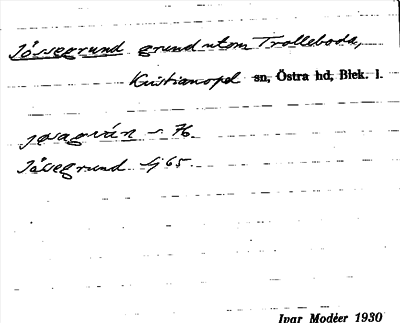 Jössegrund grund utom Trolleboda,
Kristianopel sn, Östra hd, Blek. l.
Jössegrund Sj 65.
Ivar Modéer 1930